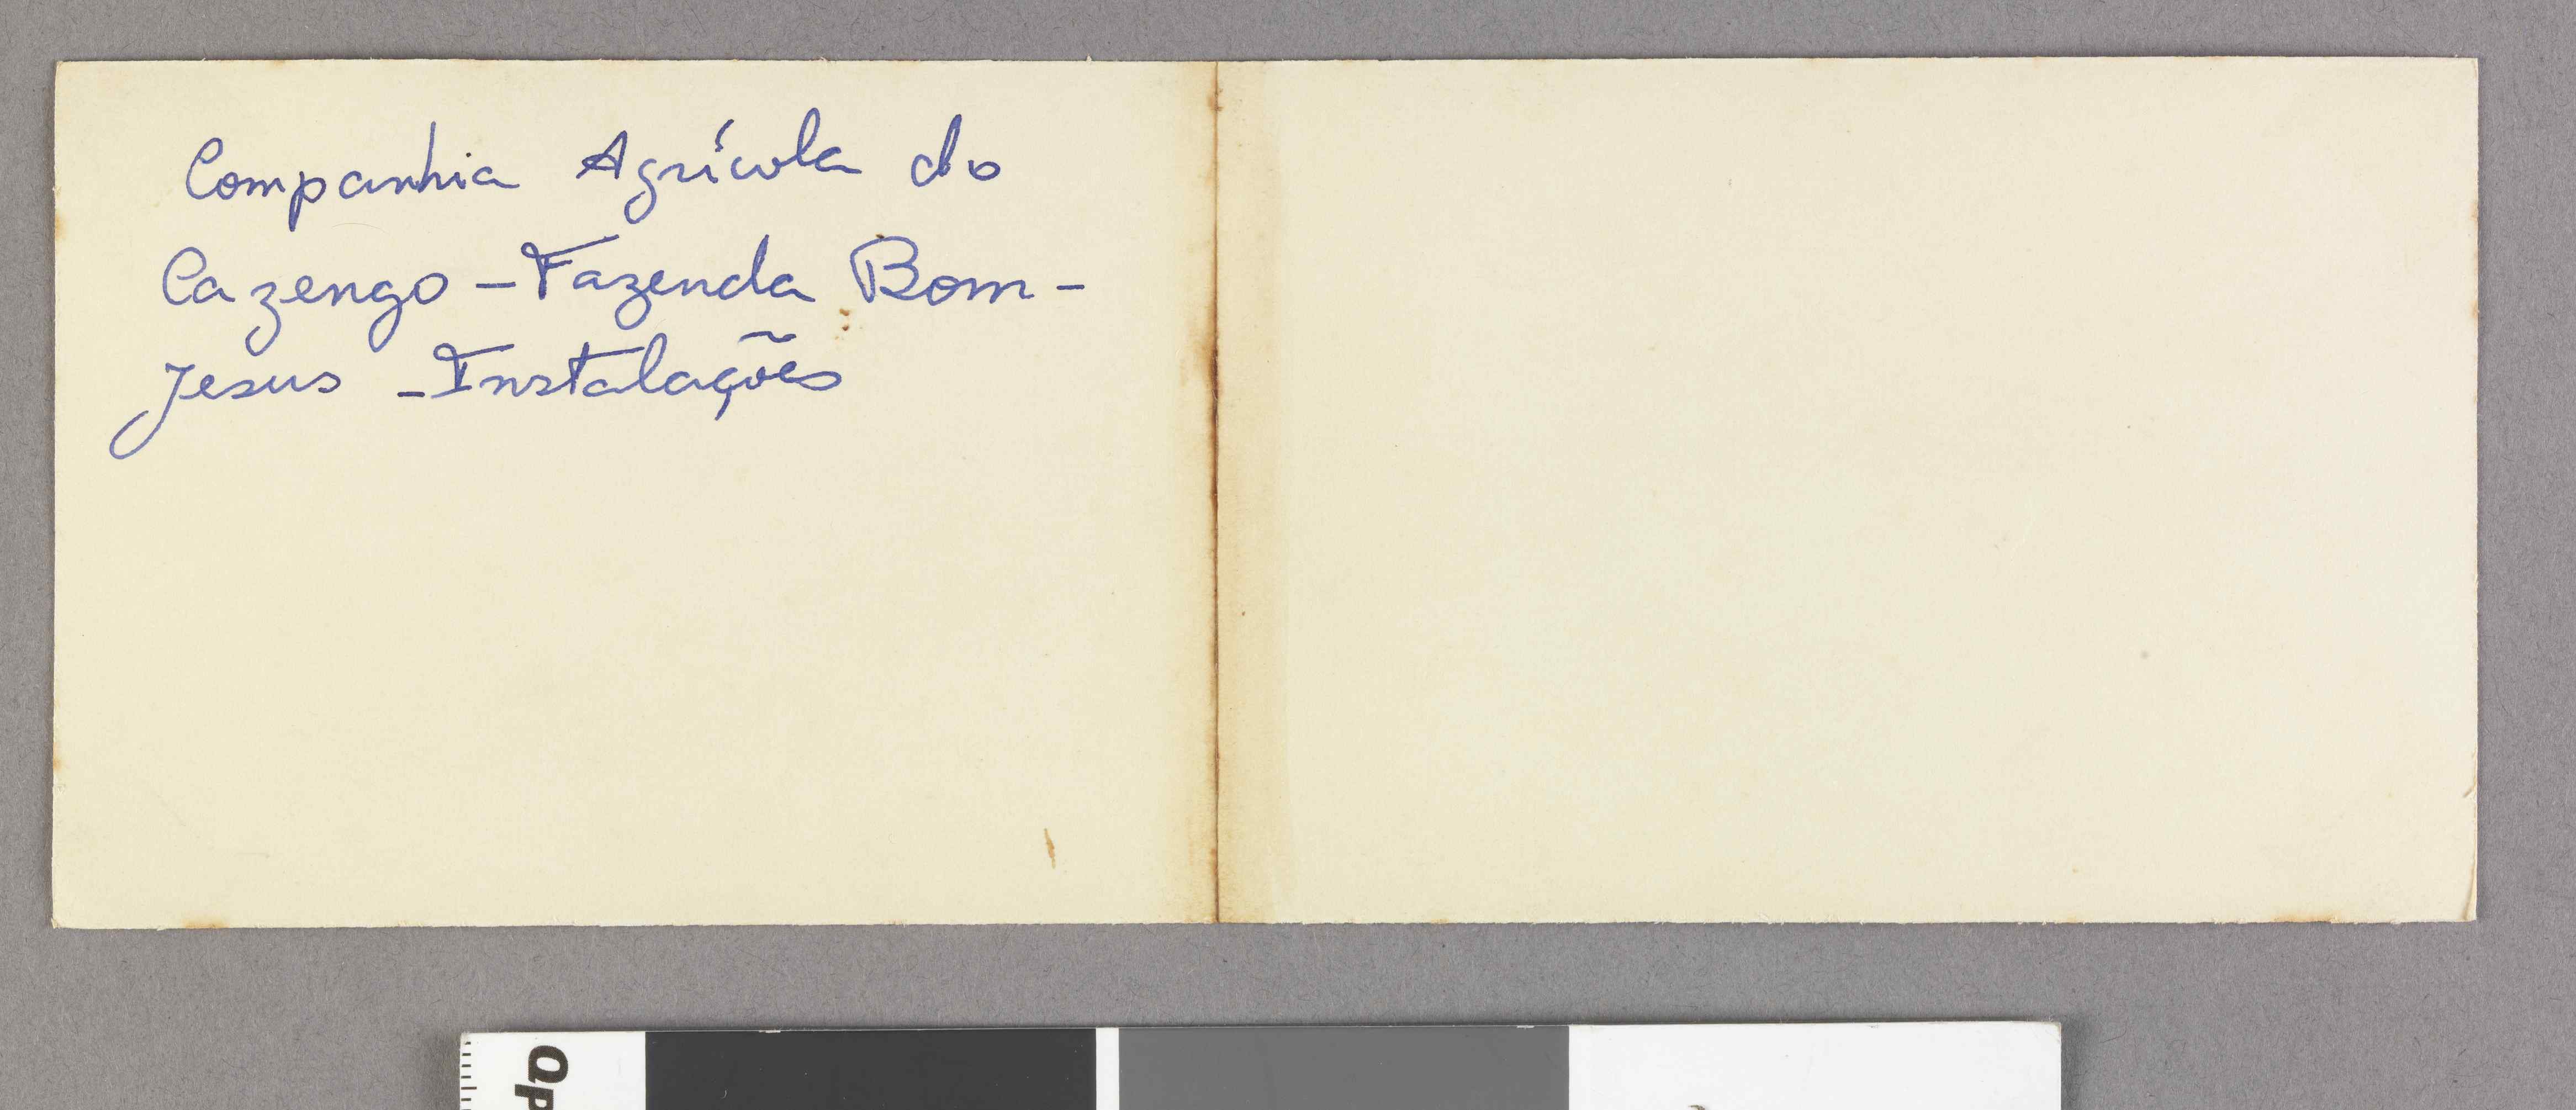 Companhia Agrícola do
Cazengo - Fazenda Bom -
Jesus - Instalações